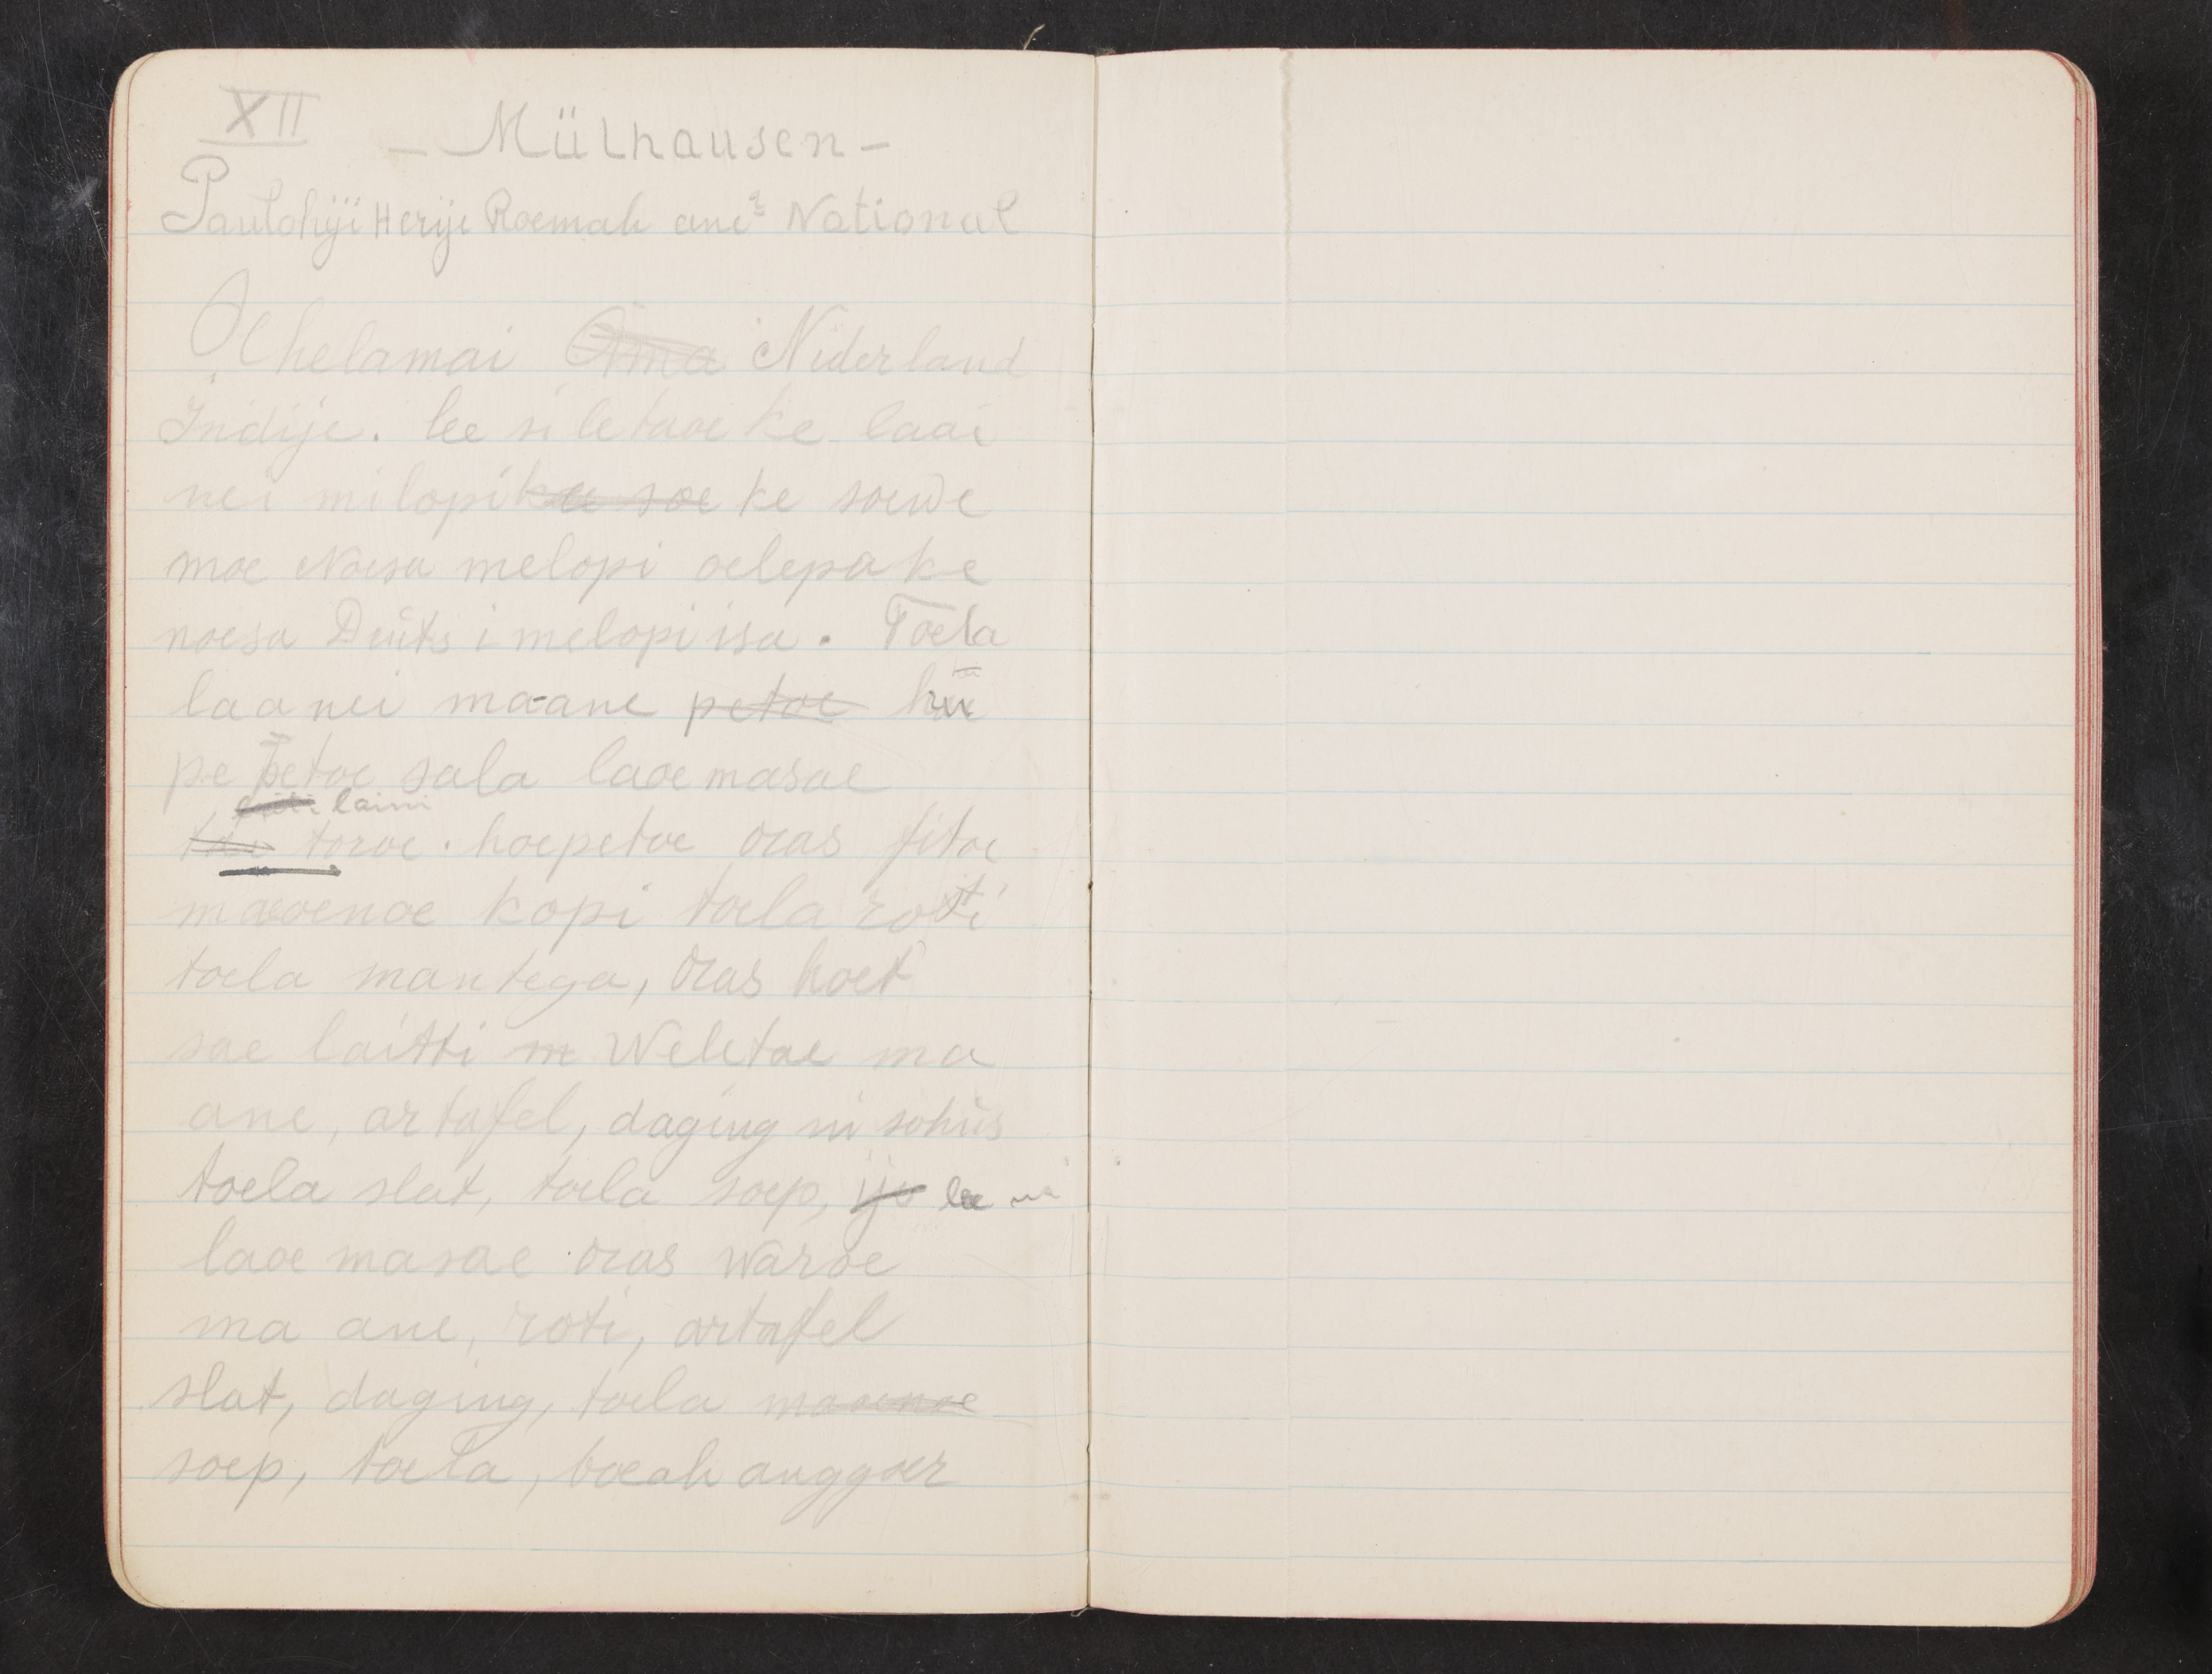 XII
- Mülhausen -
Paulohiji Herije Roemah ane² National
Olhelamai Ama Niderland
Indije. lee si letaoe ke laai
nei milopi ke soewe
moe Noesa melopi oelepa ke
noesa Deuts i melopi isa. Toela
laa nei ma-ane petoe
pe petoe sala laoe masae
laini
toroe. hoepetoe oras fitoe
maoenoe kopi toela roti
toela mantega, oras hoet
sae laitti m Weletae ma
ane, artafel, daging ni sohüs
toela slat, toela soep, ijs lee
laoe masae oras waroe
ma ane, roti, artafel
slat, daging, toela maoenoe
soep, toela, boeah anggoer